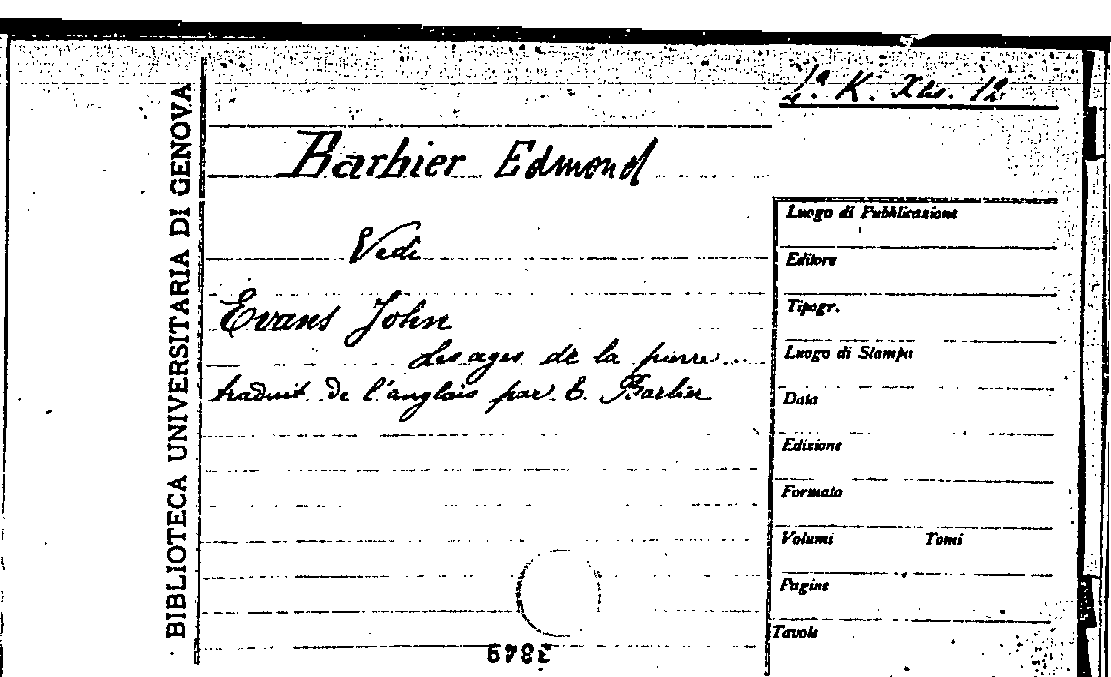 BIBLIOTECA UNIVERSITARIA DI GENOVA
Barbier Edmond
Vedi
Evans John
Les ages de la pierre...
traduit de l'anglais par E. Barbier
K. 12
Luogo di Pubblicazione
Editore
Tipogr.
Luogo di Stampa
Data
Edizione
Formato
Volumi Tomi
Pagine
Tavole